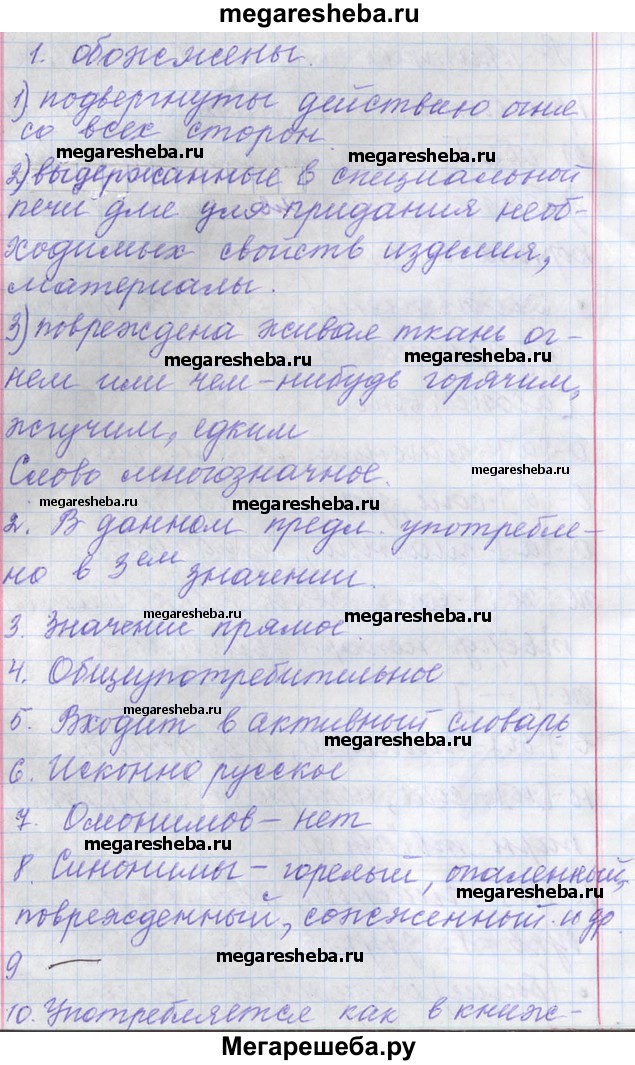 megaresheba.ru
1. обожжены.
1) подвергнуты действию огня
со всех сторон
megaresheba.ru
megaresheba.ru
2) выдержанные в специальной
печи для для придания необ-
megaresheba.ru
ходимых свойств изделия,
материалы.
3) повреждена живая ткань ог-
megaresheba.ru
megaresheba.ru
нем или чем-нибудь горячим,
жгучим, едким
Слово многозначное.
megaresheba.ru
megaresheba.ru
megaresheba.ru
2. В данном предл. употребле-
но в 3ем значении.
megaresheba.ru
megaresheba.ru
3. Значение прямое.
4. Общеупотребительное
megaresheba.ru
5. Входит в активный словарь
megaresheba.ru
6. Исконно русское
7. Омонимов – нет
megaresheba.ru
8. Синонимы – горелый, опаленный,
megaresheba.ru
поврежденный, сожженный и др.
megaresheba.ru
9 —
10. Употребляется как в книж-
Мегарешеба.ру